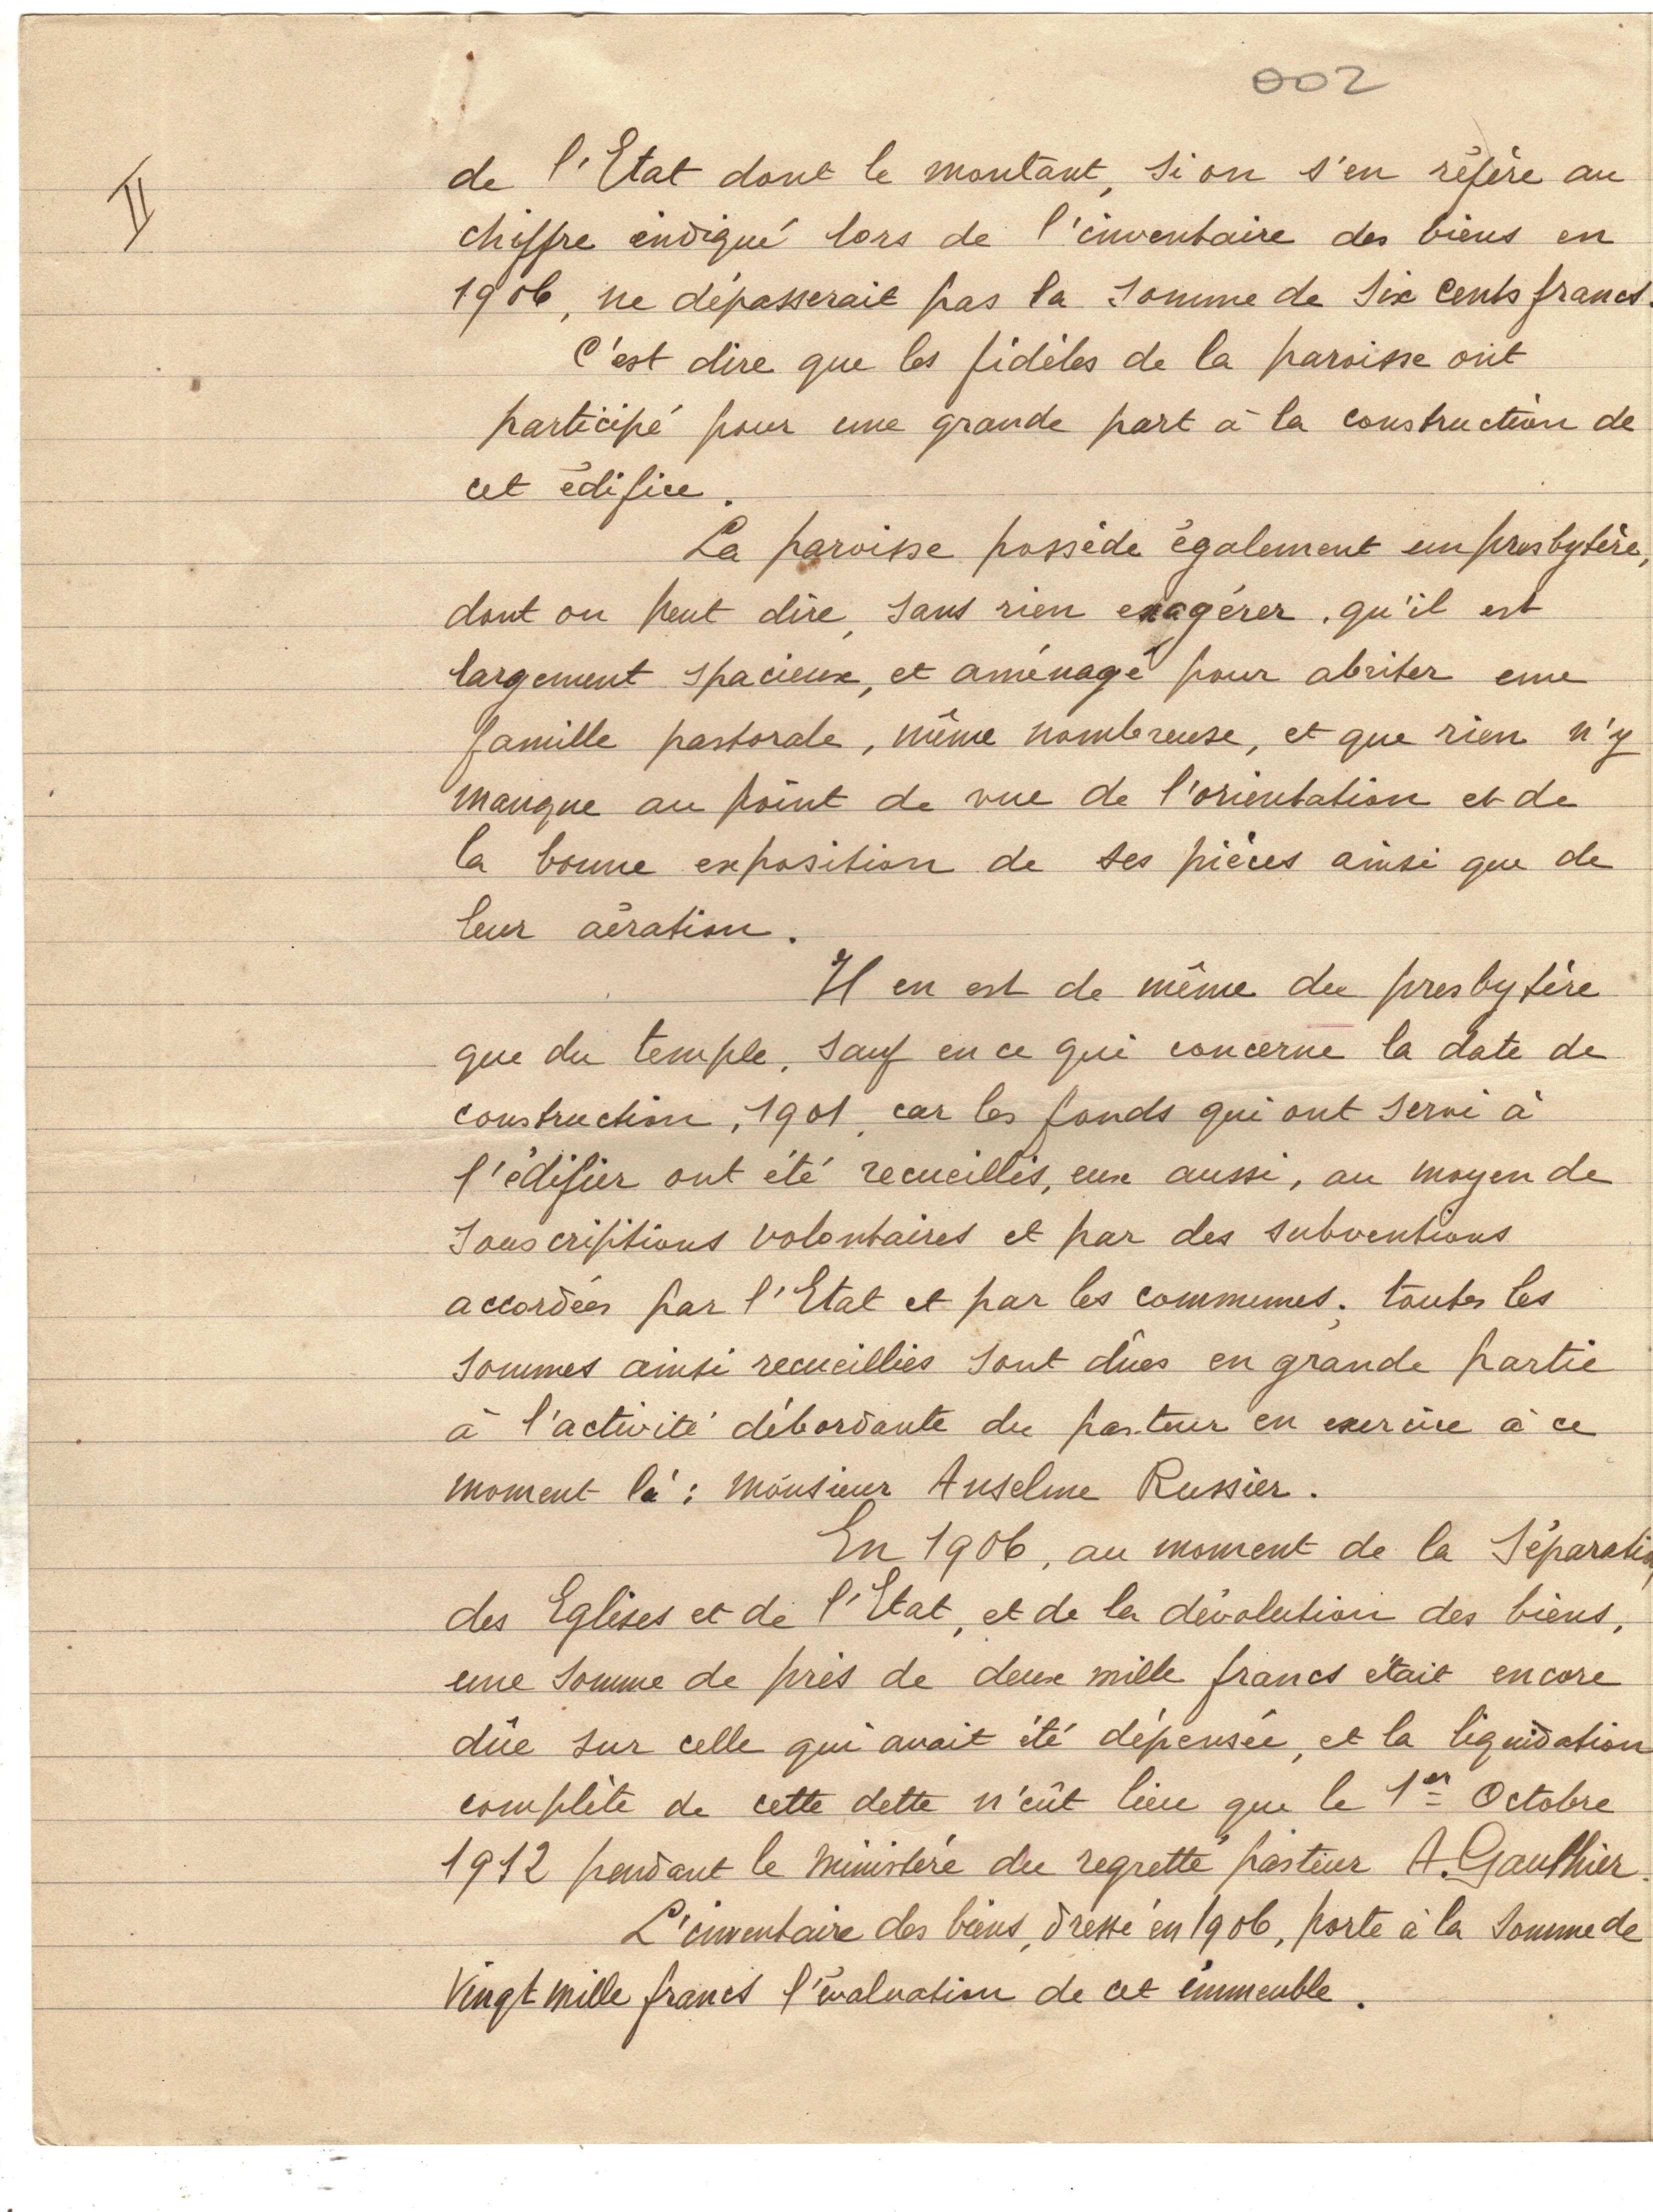 002
II
de l'Etat dont le montant, si on s'en réfère au
chiffre indiqué lors de l'inventaire des biens en
1906, ne dépasserait pas la somme de six cents francs.
C'est dire que les fidèles de la paroisse ont
participé pour une grande part à la construction de
cet édifice.
La paroisse possède également un presbytère,
dont on peut dire, sans rien exagérer, qu'il est
largement spacieux, et aménagé pour abriter une
famille pastorale, même nombreuse, et que rien n'y
manque au point de vue de l'orientation et de
la bonne exposition de ses pièces ainsi que de
leur aération.
Il en est de même du presbytère
que du temple, sauf en ce qui concerne la date de
construction, 1901, car les fonds qui ont servi à
l'édifier ont été recueillis, eux aussi, au moyen de
souscriptions volontaires et par des subventions
accordées par l'Etat et par les communes; toutes les
sommes ainsi recueillies sont dûes en grande partie
à l'activité débordante du pasteur en exercice à ce
moment là : Monsieur Anselme Russier.
En 1906, au moment de la Séparation
des Eglises et de l'Etat, et de la dévolution des biens,
une somme de près de deux mille francs était encore
dûe sur celle qui avait été dépensée, et la liquidation
complète de cette dette n'eût lieu que le 1er Octobre
1912 pendant le ministère du regretté pasteur A. Gauthier.
L'inventaire des biens, dressé en 1906, porte à la somme de
Vingt mille francs l'évaluation de cet immeuble.